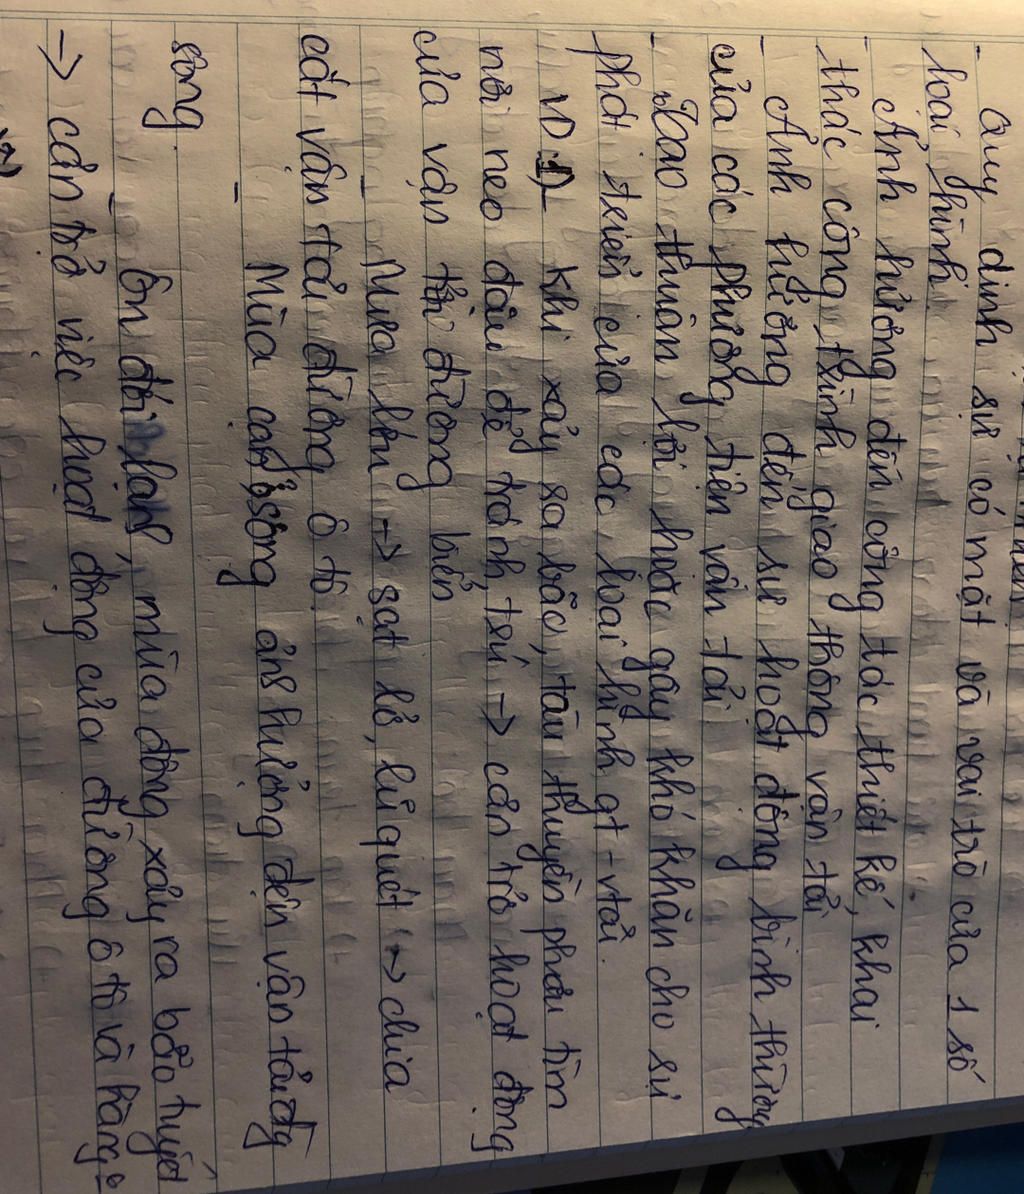 - Quy định sự có mặt và vai trò của 1 số
loại hình.
- Ảnh hưởng đến công tác thiết kế, khai
thác công trình giao thông vận tải
- Ảnh hưởng đến sự hoạt động bình thường
của các phương tiện vận tải
- Tao thuận lợi hoặc gây khó khăn cho sự
phát triển của các loại hình gt-vtải.
VD: 1) Khi xảy sa bão, tàu thuyền phải tìm
nơi neo đậu để tránh, trú -> cản trở hoạt động
của vận tải đường biển
- Mưa lớn -> sạt lở, lũ quét -> chia
cắt vận tải đường ô tô.
- Mùa cạn, sông ảnh hưởng đến vận tải đg
sông.
- Ôn đới lạnh, mùa đông xảy ra bão tuyết
-> cản trở việc hoạt động của đường ô tô và hàng k